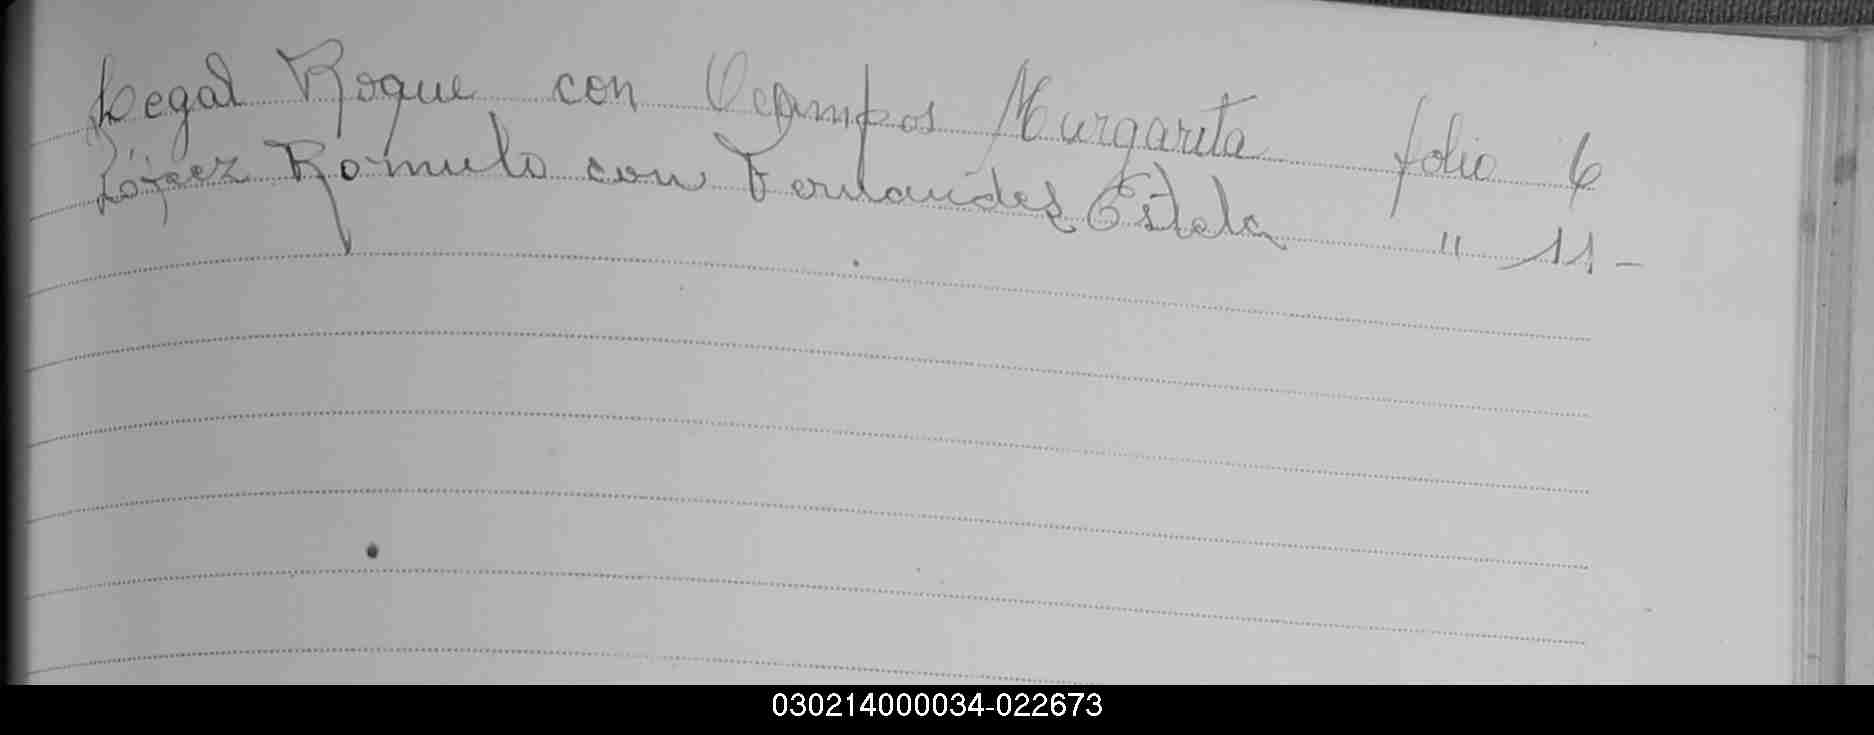 Legal Roque con Ocampos Margarita folio 6
López Romulo con Fernandez Estela " 11-
030214000034-022673